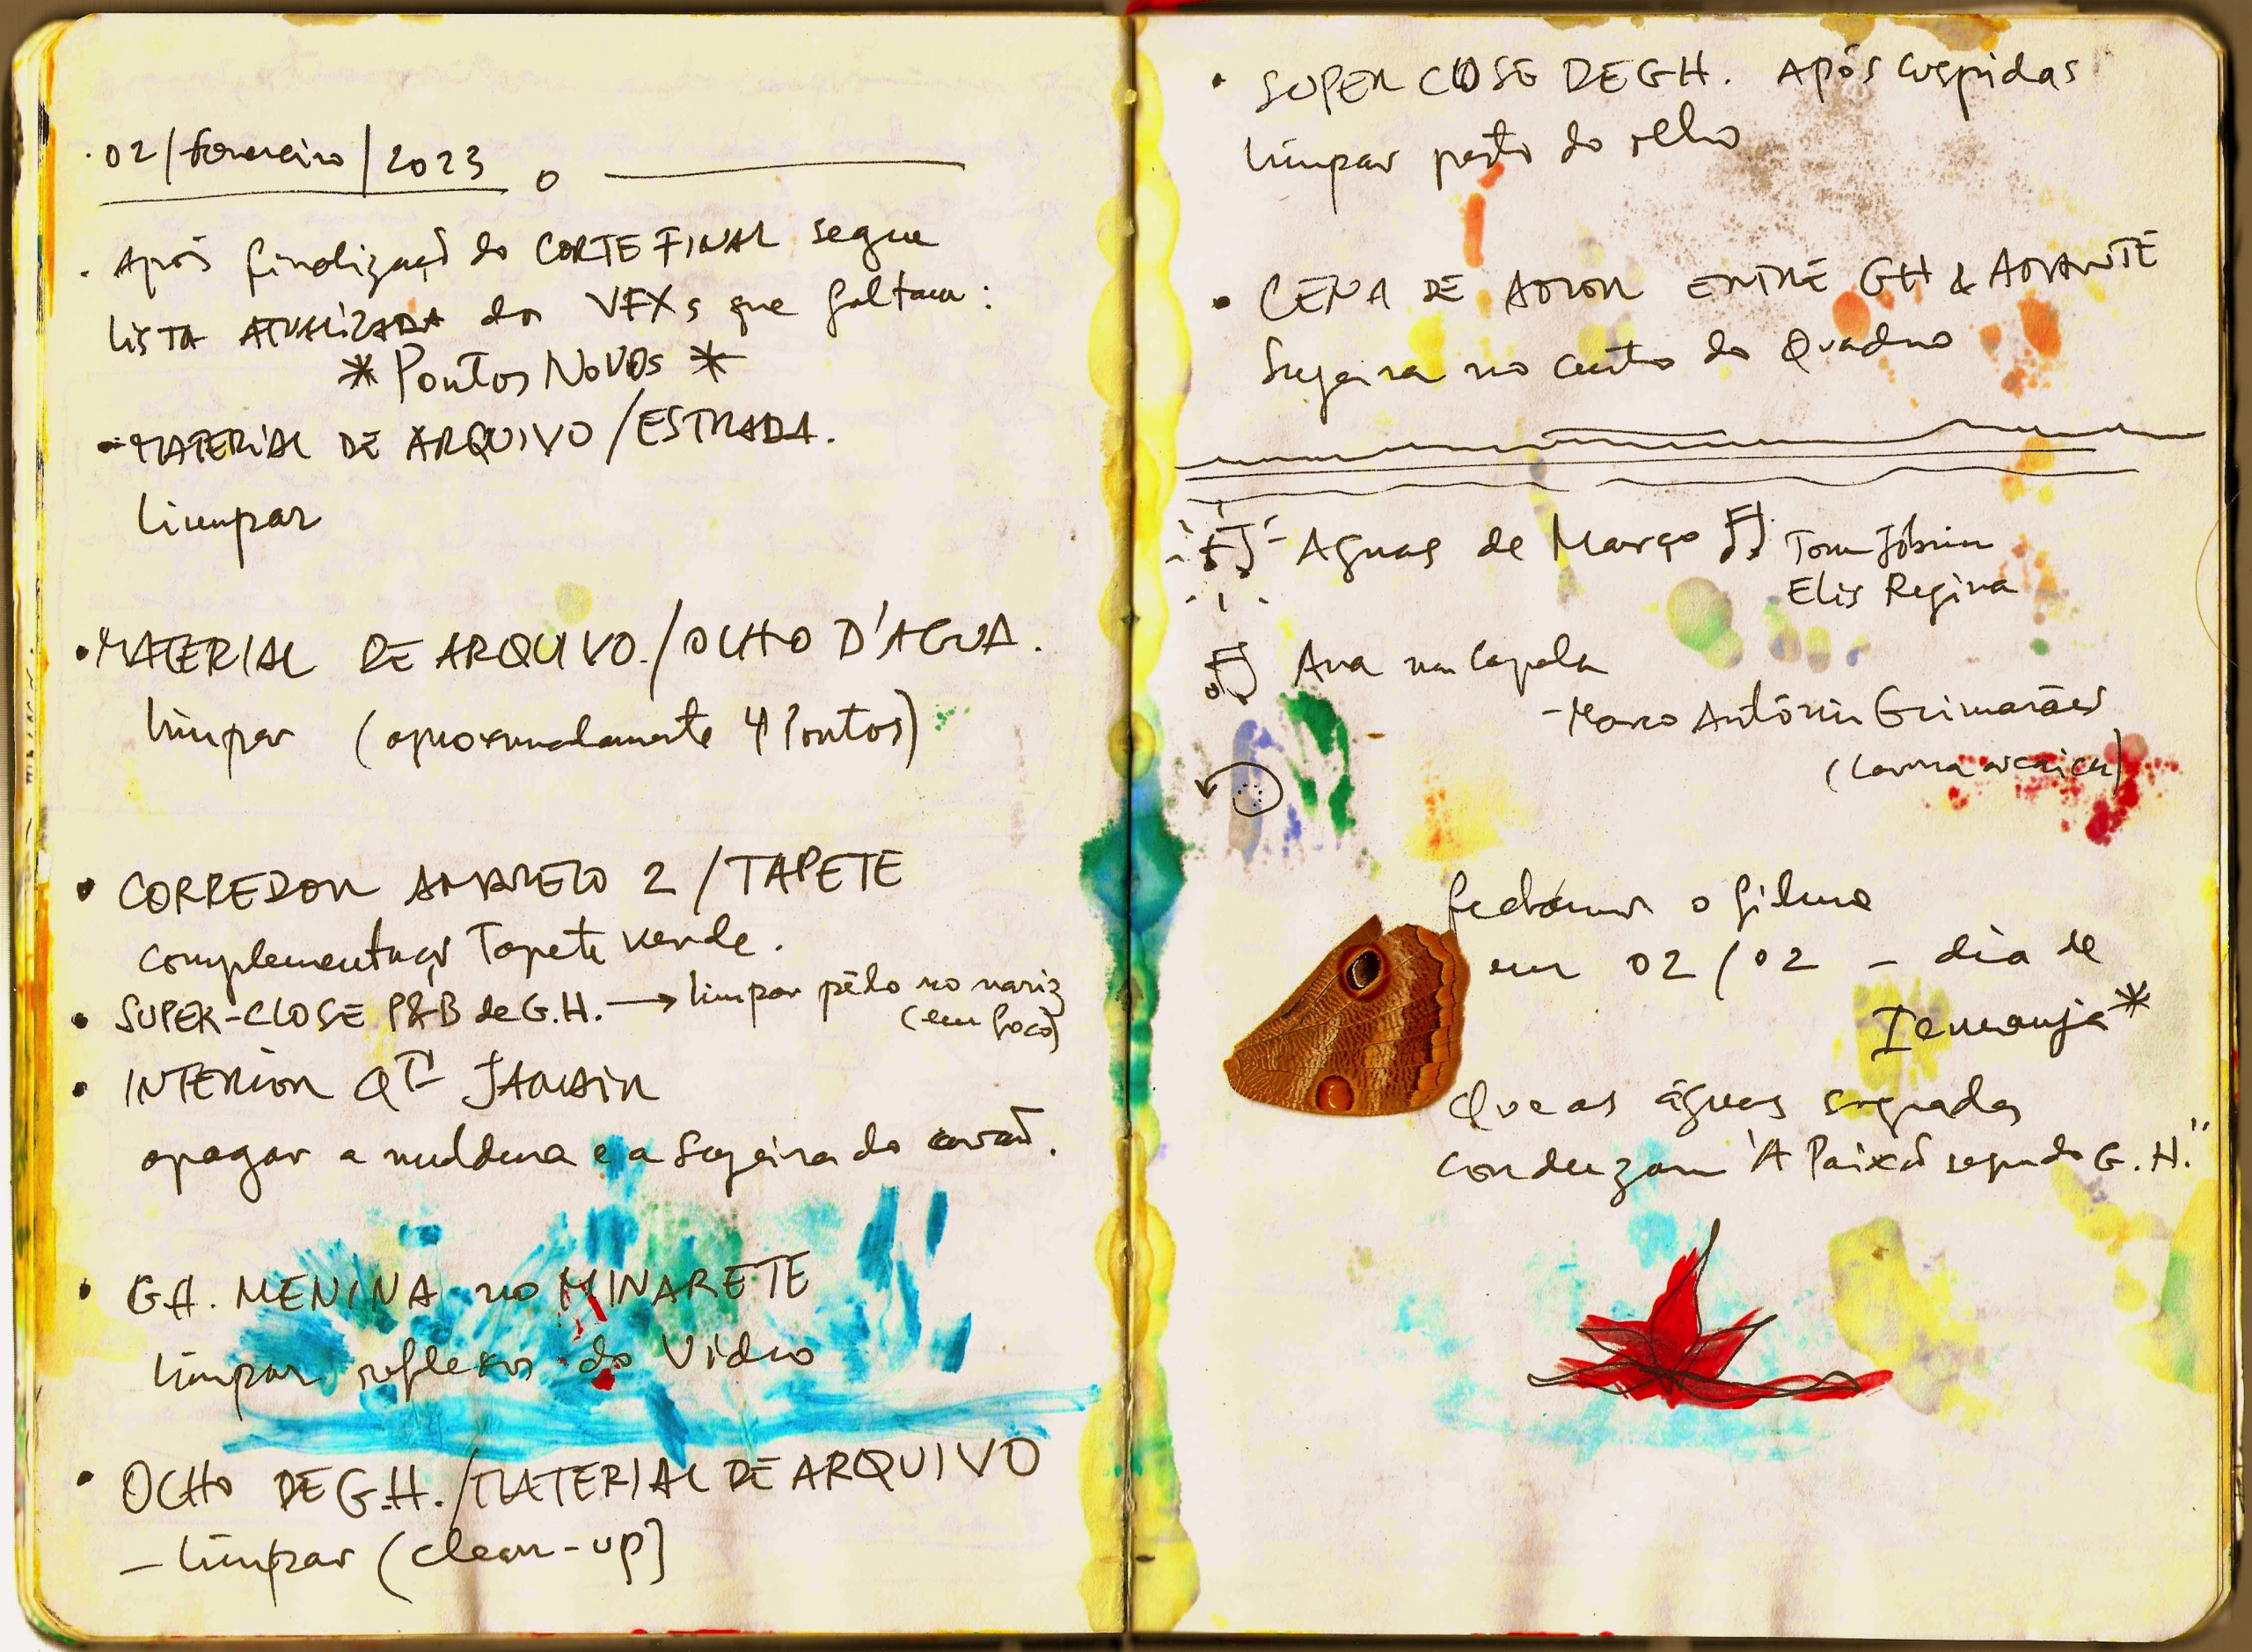 02/fevereiro/2023
. Após finalizaçã do CORTE FINAL segue
LISTA ATUALIZADA dos VFXs que faltam:
* Pontos NOVOS *
- MATERIAL DE ARQUIVO / ESTRADA.
limpar
• MATERIAL DE ARQUIVO. / OLHO D'AGUA.
limpar (aproximadamente 4 Pontos)
• CORREDOR AMARELO 2 / TAPETE
complementaçã Tapete verde.
• SUPER-CLOSE P&B de G.H. → limpar pêlo no nariz
(em foco)
• INTERIOR QTO JANAIR
apagar a moldura e a sujeira do
• G.H. MENINA no MINARETE
limpar reflexos do Vidro
• OLHO DE G.H. / MATERIAL DE ARQUIVO
- limpar (clean-up)
• SUPER CLOSE DE G.H. APÓS cuspidas
limpar perto do olho
• CENA DE AMOR ENTRE GH & AMANTE
Sujeira no centro do Quadro
Aguas de Março Tom Jobim
Elis Regina
Ana na Capela
- Marco Antônio Guimarães
(Lavoura arcaica)
fechamos o filme
em 02/02 - dia de
Iemanja*
Que as águas sagradas
conduzam "A Paixã segundo G.H."